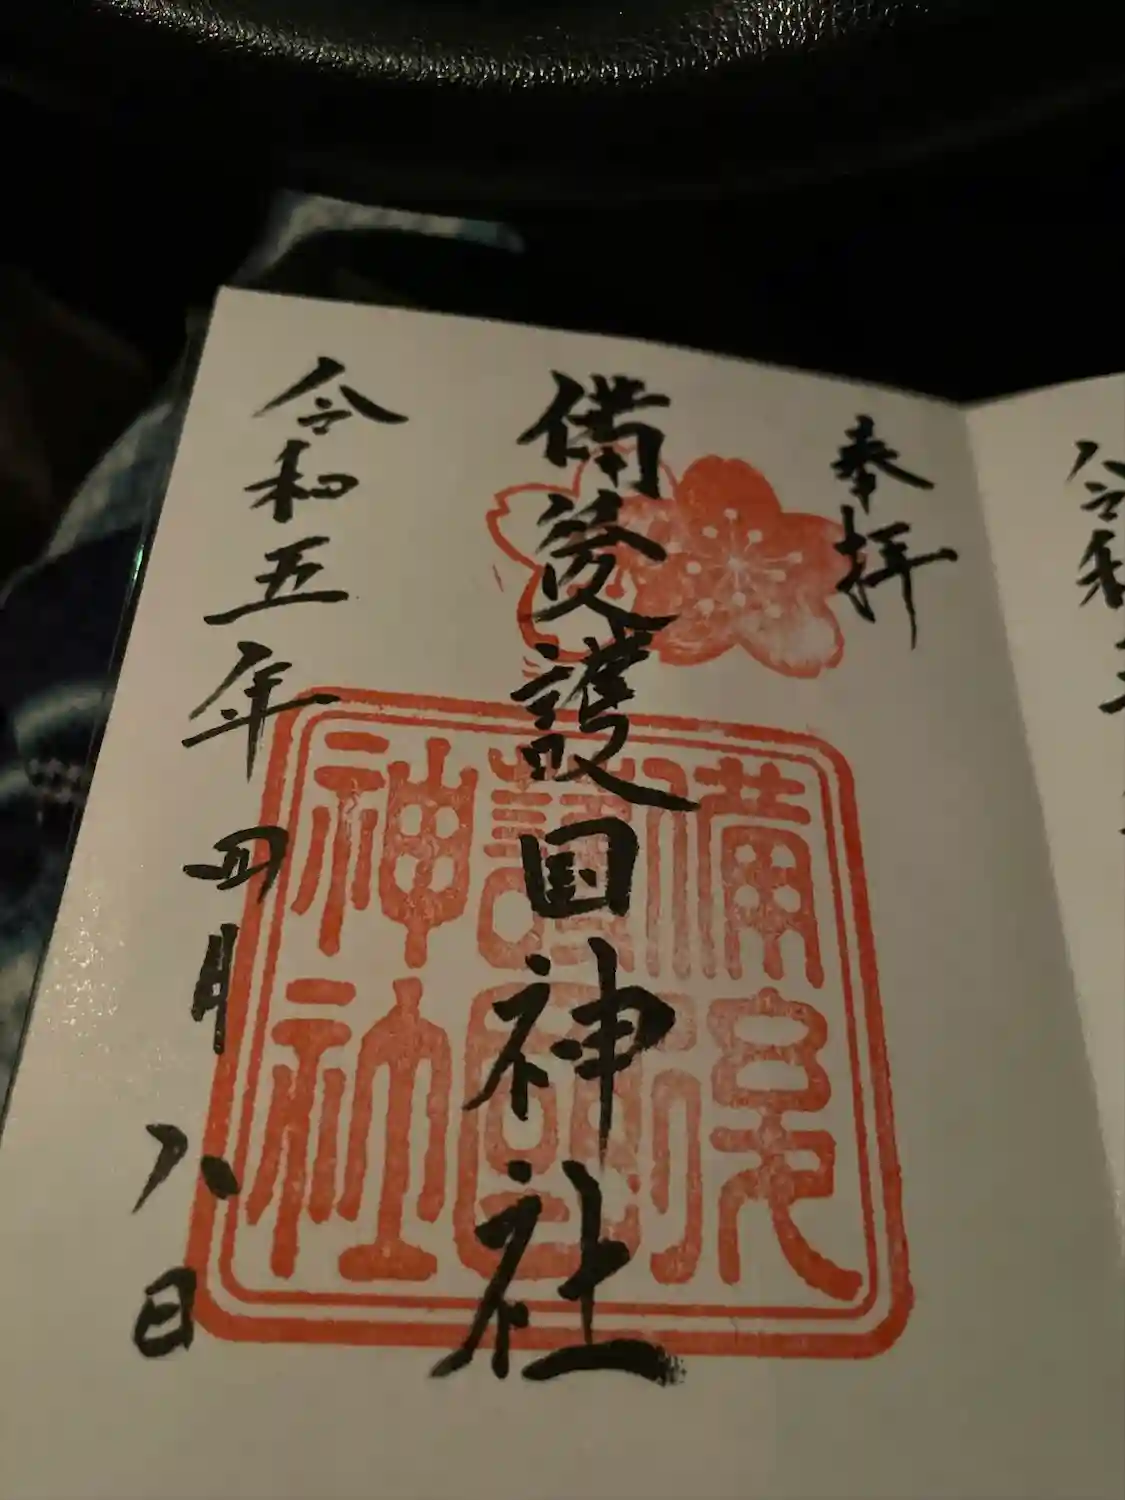 奉拝
備後護国神社
備後
護國
神社
令和五年四月八日
令和